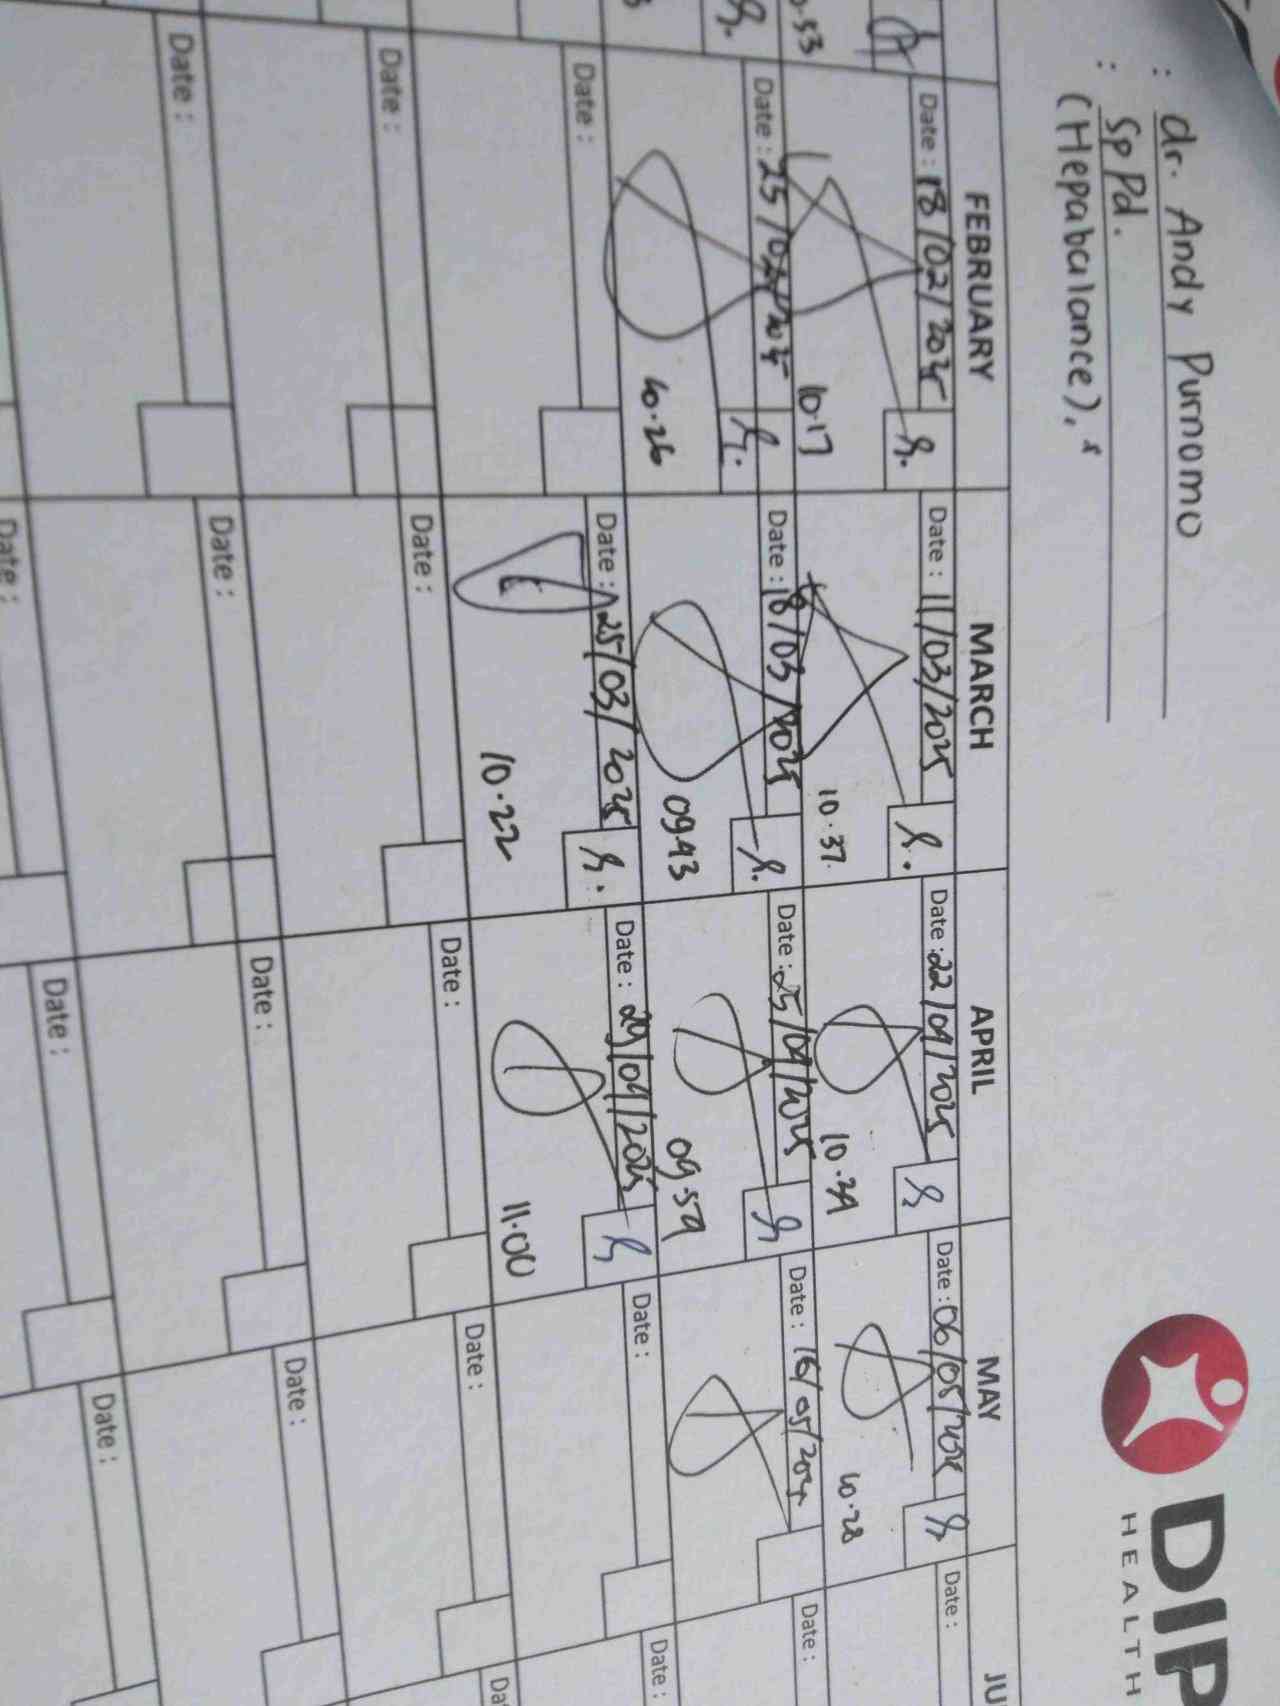 : dr. Andy Purnomo
: Sp Pd.
(Hepabalance),
DIP
HEALTH
FEBRUARY
MARCH
APRIL
MAY
JU
Date : 18/02/2025
10.17
Date : 11/03/2025
10.37.
Date : 22/04/2025
10.39
Date : 06/05/2025
10.28
Date :
Date : 25/02/2025
10.26
Date : 18/03/2025
09.43
Date : 25/04/2025
09.59
Date : 16/05/2025
Date :
Date :
Date : 25/03/2025
10.22
Date : 29/04/2025
11.00
Date :
Date :
Date :
Date :
Date :
Date :
Date :
Date :
Date :
Date :
Date :
Date :
Date :